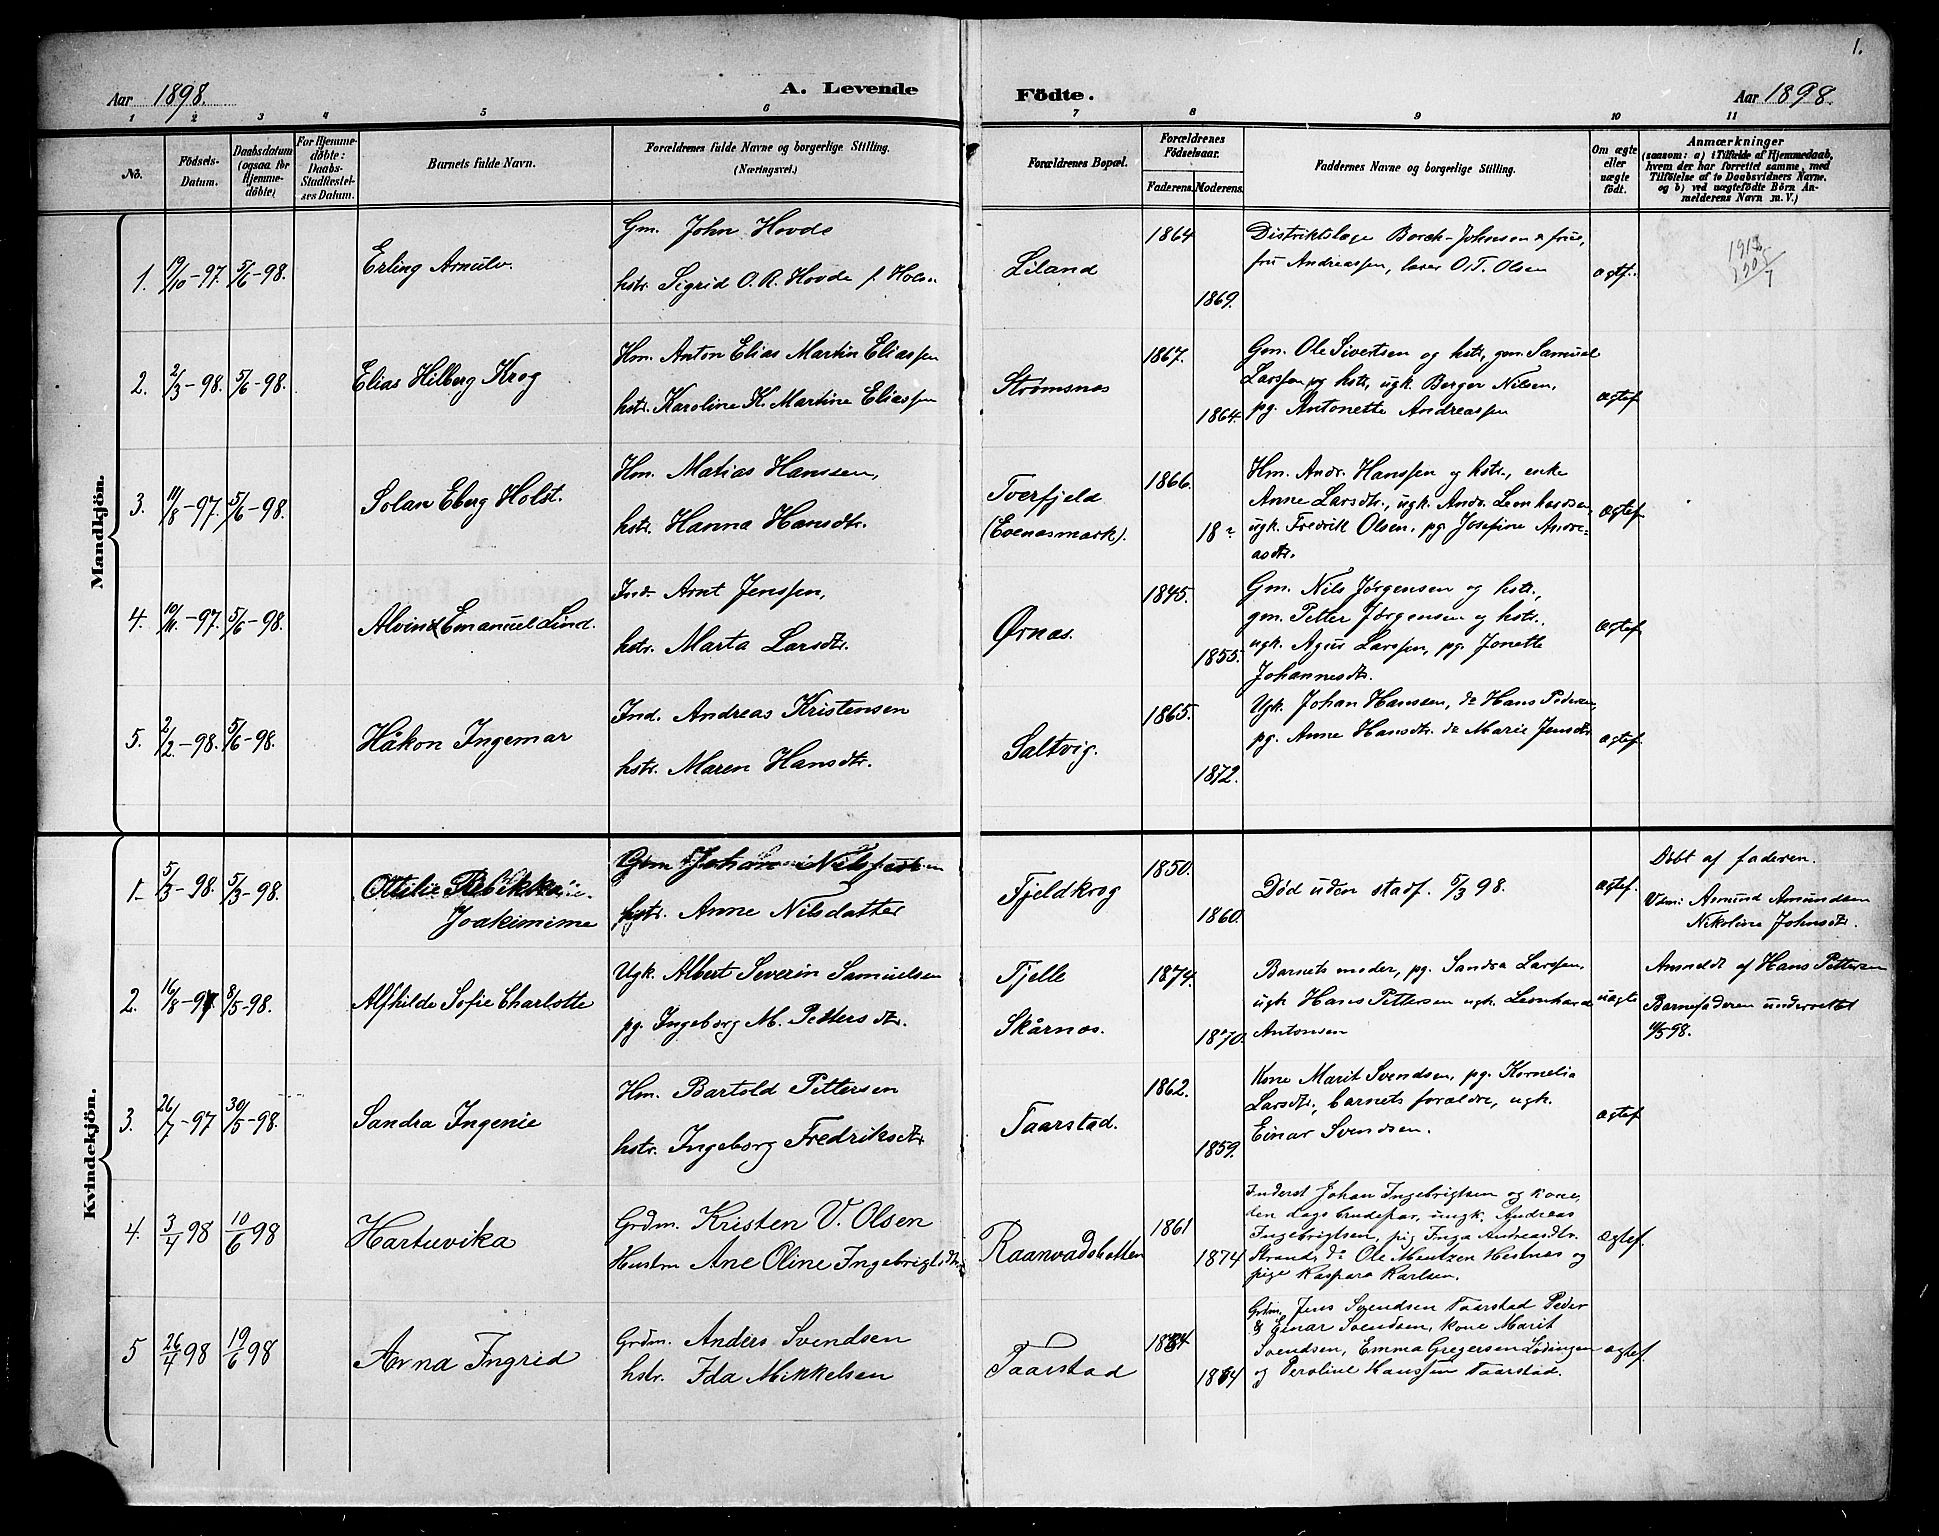 1.
Aar 1898. A. Levende Födte. Aar 1898.
1 2 3 4 5 6 7 8 9 10 11
No.
Födsels-
Datum.
Daabsdatum
(ogsaa for
Hjemme-
döbte)
For Hjemme-
döbte:
Daabs-
Stadfæstel-
ses Datum.
Barnets fulde Navn.
Forældrenes fulde Navne og borgerlige Stilling.
(Næringsvei.)
Forældrenes Bopæl.
Forældrenes
Födselsaar.
Faderens. Moderens.
Faddernes Navne og borgerlige Stilling.
Om ægte
eller
uægte
födt.
Anmærkninger
(saasom: a) i Tilfælde af Hjemmedaab,
hvem der har forrettet samme, med
Tilföielse af to Daabsvidners Navne,
og b) ved uægtefödte Börn An-
melderens Navn m. V.)
Mandkjön.
1. 19/10-97. 5/6-98.
Erling Arnulv.
Gm. John Hovde
hstr. Sigrid O. R. Hovde f. Hols
Liland
1864
1869.
Distriktslæge Borck-Johnsen & frue,
fru Andreassen, lærer O. T. Olsen
ægtef.
2. 2/3-98. 5/6-98.
Elias Hilberg Krog
Hm. Anton Elias Martin Eliassen
hstr. Karoline K. Martine Eliassen
Strømsnes
1867.
1864.
Gm. Ole Sivertsen og hstr, gm. Samuel
Larssen og hstr, ugk. Berger Nilsen,
pg. Antonette Andreassen
ægtef.
3. 19/8-97. 5/6-98.
Solan Eberg Holst.
Hm. Matias Hanssen,
hstr. Hanna Hansdtr.
Tverfjeld
(Evenesmark).
1866.
18
Hm. Andr. Hanssen og hstr., enke
Anne Larsdtr., ugk. Andr. Leonhardsen,
ugk. Fredrik Olsen, pg Josefine Andre-
asdtr.
ægtef.
4. 10/11-97. 5/6-98.
Alvind Emanuel Lind.
Ind. Arnt Jenssen,
hstr. Marta Larsdtr.
Ørnes.
1845.
1855.
Gm. Nils Jørgensen og hstr.,
gm. Petter Jørgensen og hstr.,
ugk. Agur Larssen, pg. Jonette
Johannesdtr.
ægtef.
5. 2/2-98. 5/6-98.
Håkon Ingemar
Ind. Andreas Kristensen
hstr. Maren Hansdtr.
Saltvig.
1865.
1872.
Ugk. Johan Hansen, do Hans Pedersen,
pg. Anne Hansdtr. do Marie Jensdtr.
ægtef.
Kvindekjön.
1. 5/3-98. 5/3-98.
Ottilie Rebekka
Joakimime
Gm Johan Nils
hstr. Anne Nilsdatter
Fjeldkrog
1850.
1860.
Død uden stadf. 5/3 98.
ægtef.
Døbt af faderen.
Vidner: Amund Amundsen
Nikoline Johnsdtr.
2. 16/8-97 8/5-98.
Alfhilde Sofie Charlotte
Ugk. Albert Severin Samuelsen
pg. Ingeborg M. Pettersdtr.
Fjelle
Skårnes.
1874.
1870.
Barnets moder, pg. Sandra Larssen,
ugk Hans Pettersen ugk. Leonhard
Antonsen
uægte
Anmeldt af Hans Pettersen
Barnefaderen underrettet
5 98.
3. 26/7-97 30/5-98.
Sandra Ingenie
Hm. Bartold Pettersen
hstr. Ingeborg Fredriksdtr
Taarstad.
1862.
1859.
Kone Marit Svendsen, pg. Kornelia
Larsdtr., barnets forældre, ugk.
Einar Svendsen.
ægtef
4. 3/4 98 10/6 98
Hartuvika
Grdm. Kristen V. Olsen
Hustru Ane Oline Ingebrigtsdtr.
Raanvadsbotten
1861
1874
Inderst Johan Ingebrigtsen og kone,
den dags brudepar, ungk. Andreas
Ingebrigtsen, pig Inga Andreasdtr.
Strand, do Ole Mentzen Hestnes og
pige Kaspara Karlsen.
ægtef.
5 26/4 98 19/6 98
Anna Ingrid
Grdm. Anders Svendsen
hstr. Ida Mikkelsen
Taarstad
Grdm. Jens Svendsen Taarstad Peder
& Einar Svendsen, kone Marit
Svendsen, Emma Gregersen Lødingen
og Peroline Hanssen Taarstad.
ægtef.